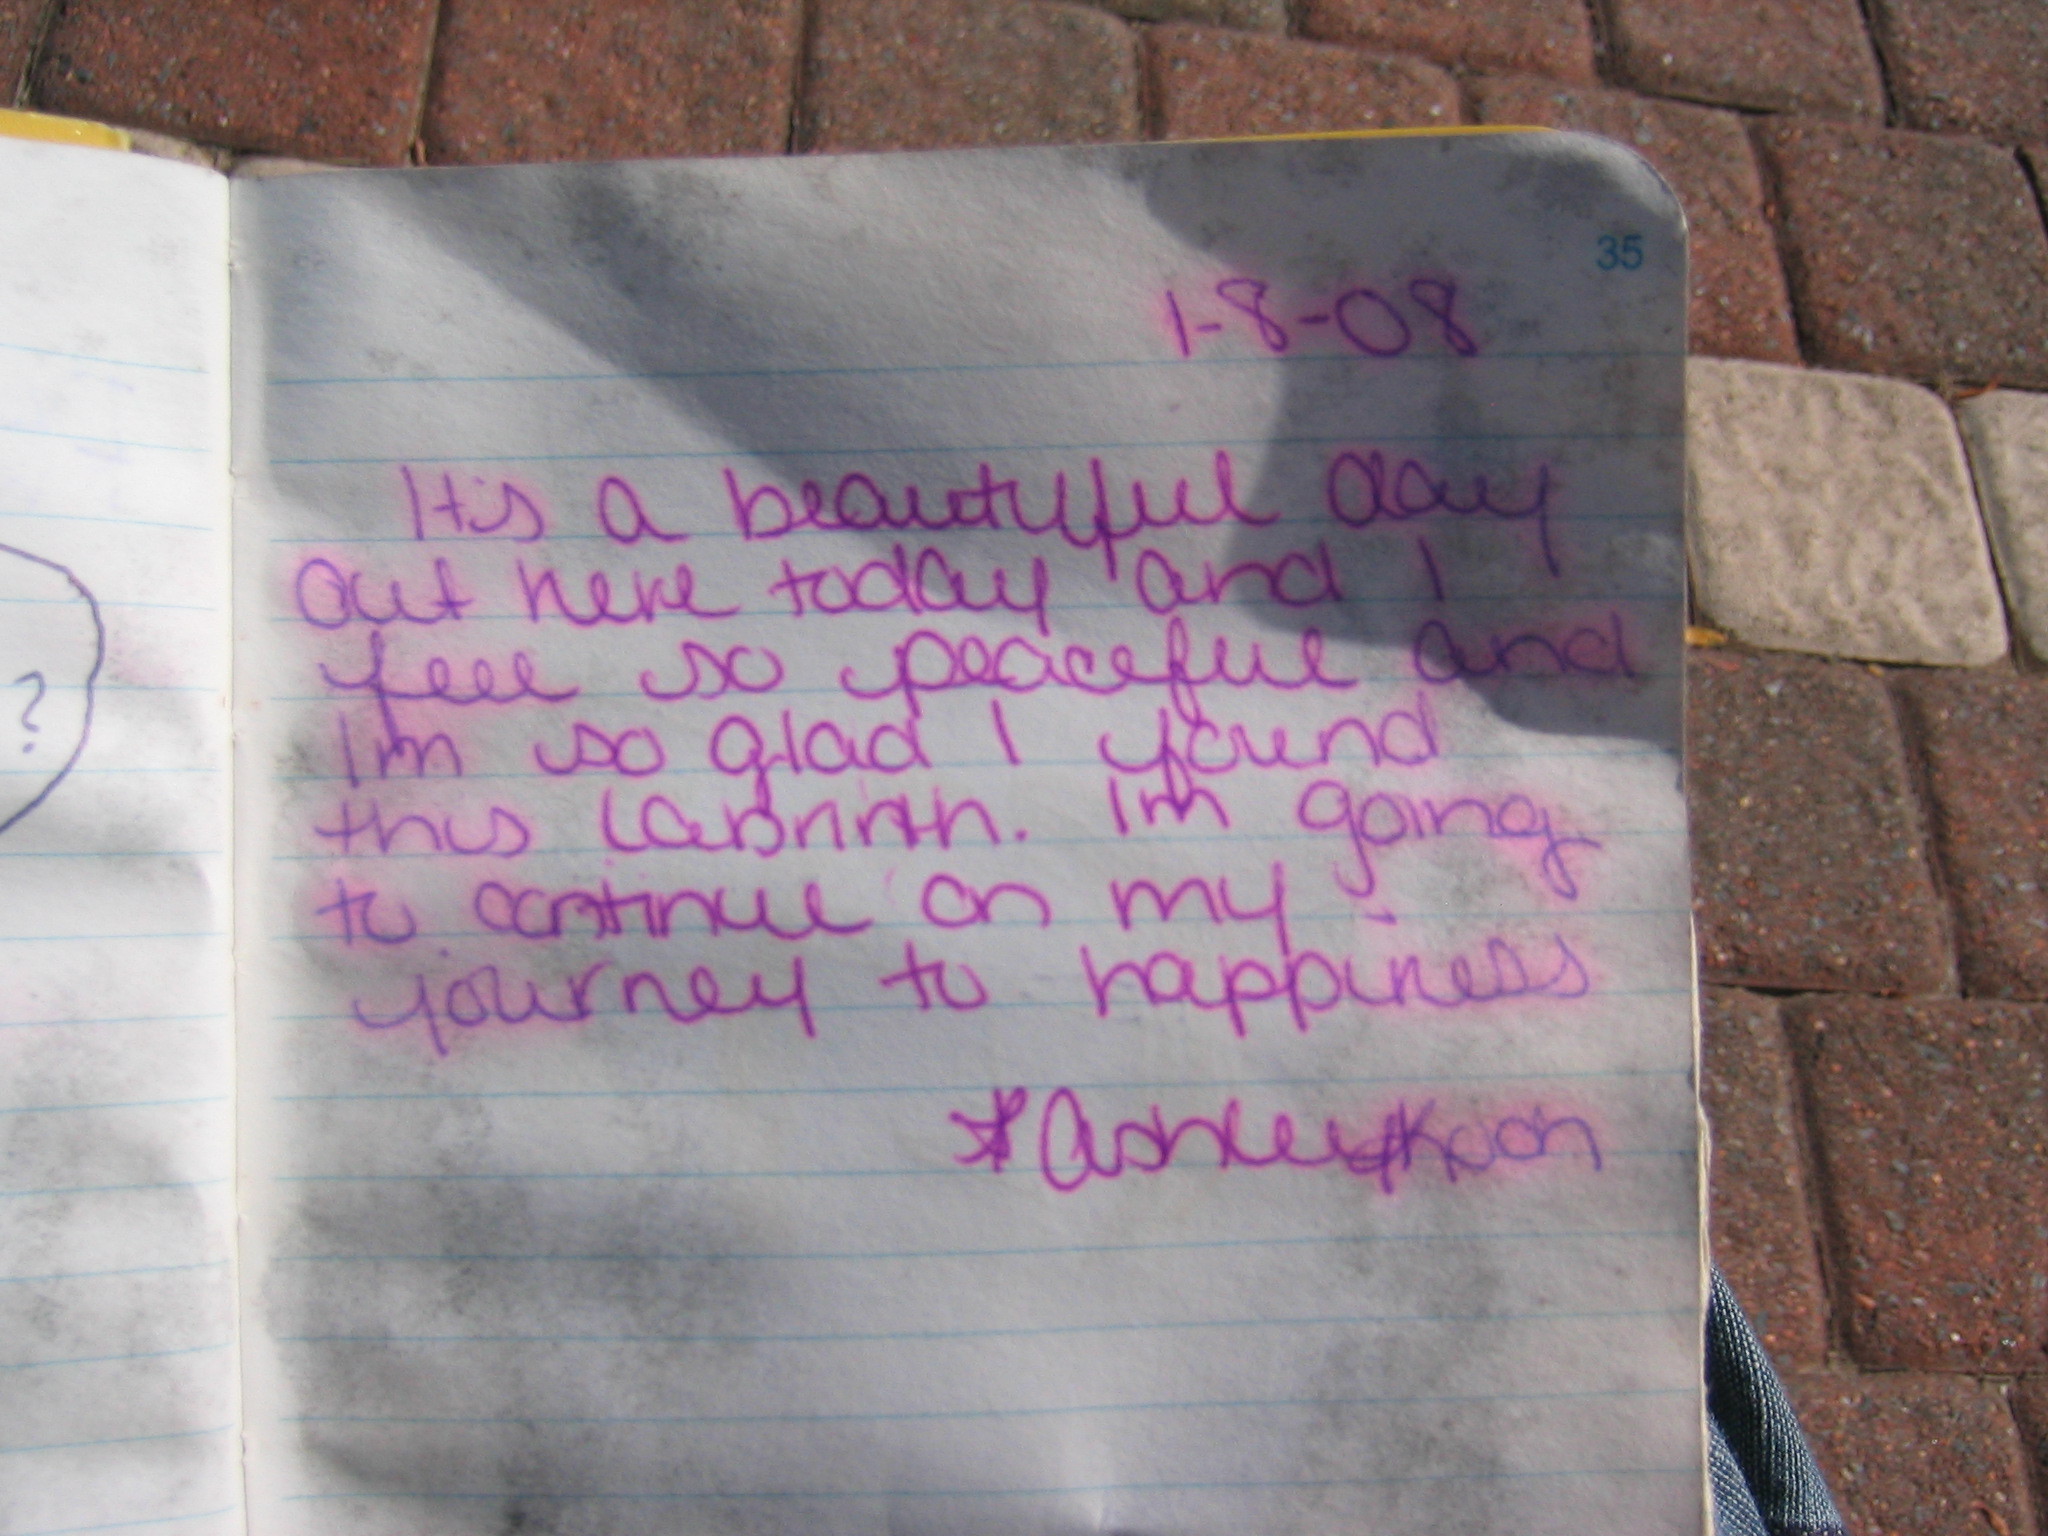 ?
35
1-8-08
It's a beautiful day
out here today and I
feel so peaceful and
I'm so glad I found
this Labrinth. I'm going
to continue on my
journey to happiness
*Ashley Koch